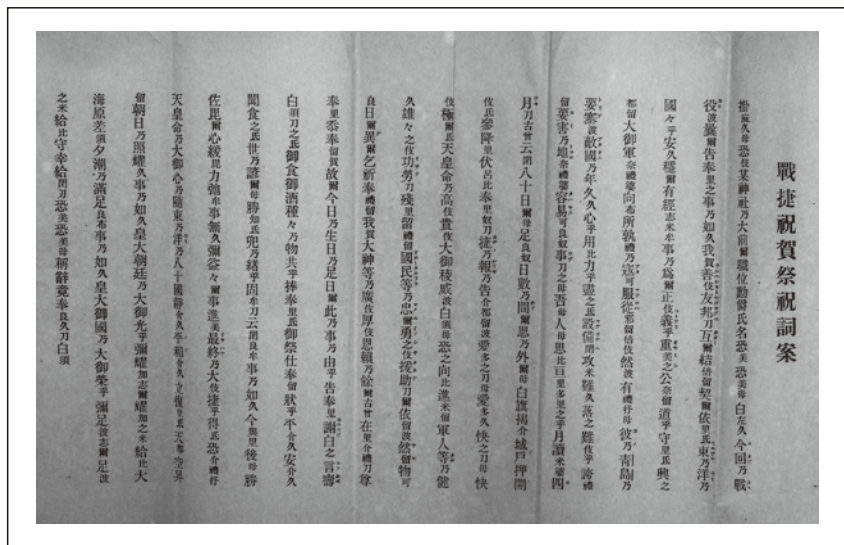 戰捷祝賀祭祝詞案
掛麻久母恐伎某神社乃大前爾職位勳爵氏名恐美恐美母白左久今回乃戰
役波曩爾告奉里之事乃如久我賀善伎友邦刀互爾結倍留契爾依里氐東乃洋乃
國々乎安久穩爾有經志米牟事乃爲爾正伎義乎重美之公奈留道乎守里氐興之
都留大御軍奈禮婆向布所孰禮乃寇可服從邪留倍伎然波有禮杼母彼乃靑島乃
要塞波敵國乃年久久心乎用比力乎盡之氐設備閇攻米難久落之難伎乎誇禮
留要害乃地奈禮婆容易可良奴事刀之母吾母人母思比亘里多里之乎月讀米婆四
月刀古曾云閇八十日爾母足良奴日數乃間爾思乃外爾母白旗揭介城戶押開
伎氐參降里伏呂比奉里奴刀捷乃報乃告介都留波愛多之刀母愛多久快之刀母快
伎極爾氐天皇命乃高伎貴伎大御稜威波白須母恐之向比進米留軍人等乃健
久雄々之伎功勞刀殘里留禮留國民等乃忠爾勇之伎援助刀爾依留波然留物可
良日爾異爾乞祈奉禮留我賀大神等乃廣伎厚伎恩賴乃餘爾古曾在里介禮刀尊
奉里忝奉留賀故爾今日乃生日乃足日爾此乃事乃由乎告奉里謝白之言壽
白須刀之氐御食御酒種々乃物共乎捧奉里氐御祭仕奉留狀乎平介久安介久
聞食之氐世乃諺爾母勝知氐兜乃緖乎固牟刀云閇良牟事乃如久今與里後母勝
佐毘爾心緩毘力弛牟事無久彌益々爾事進美最終乃大伎捷乎得氐恐介禮杼
天皇命乃大御心乃隨東乃洋乃八十國靜介久平穩介久立復里氐天都空昇
留朝日乃照耀久事乃如久皇大朝廷乃大御光乎彌耀加志爾耀加之米給比大
海原差須夕潮乃滿足良布事乃如久皇大御國乃大御榮乎彌足波志爾足波
之米給比守幸給閇刀恐美恐美母稱辭竟奉良久刀白須